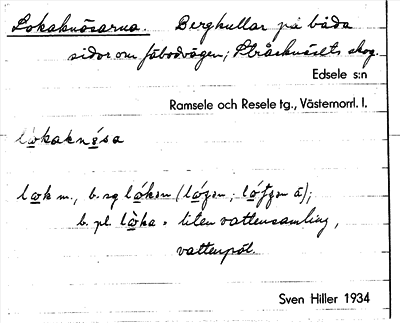 Lokaknösarna. Bergkullar på båda
sidor om fäbodvägen; Stråsknäsets skog.
Edsele s:n
Ramsele och Resele tg., Västernorrl. l.
lò̱kaknø̱sa
lo̱k m., b. sg ló̱ken
b. pl. lò̱ka = liten vattensamling,
vattenpöl.
Sven Hiller 1934